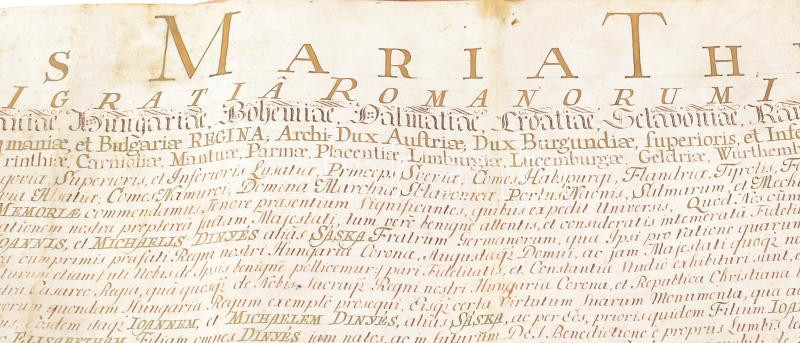 S MARIA TH
I GRATIÂ ROMANORUM I
aniæ, Hungariæ, Bohemiæ, Dalmatiæ, Croatiæ, Sclavoniæ, Ra
maniæ, et Bulgariæ REGINA, Archi-Dux Austriæ, Dux Burgundiæ, superioris, et Infe
rinthiæ, Carnioliæ, Mantuæ, Parmæ, Placentiæ, Limburgiæ, Lucemburgæ, Geldriæ, Würthemb
Superioris, et Inferioris Lusatiæ, Princeps Sveviæ, Comes Habspurgi, Flandriæ, Tyrolis, F
Alsatiæ, Comes Namurci, Domina Marchiæ Sclavonicæ, Portus Naonis, Salinarum, et Mechli
MEMORIÆ commendamus Tenore præsentium Significantes, quibus expedit Universis, Quod Nos cùm
ationem nostræ propterea factam Majestati, tum verò benignè attentis, et consideratis intemerata Fidelit
OANNIS, et MICHAELIS DINYÉS aliàs SÁSKA Fratrum Germanorum, qua Ipsi pro ratione quarum
cumprimis præfati Regni nostri Hungariæ Coronæ, Augustæq Domui, ac jam Majestati quoq no
turum etiam futi Nobis de Ipsis benignè pollicemur; pari Fidelitatis, et Constantiæ Studiô exhibituri sunt, e
stri Cæsareo Regia, quâ quoq de Nobis, Sacraq Regni nostri Hungariæ Corona, et Republica Christiana b
vorum quondam Hungariæ Regum exemplô prosequi, Eisq certa Virtutum Suarum Monumenta, qua ad
us, Eosdem itaq IOANNEM, et MICHAELEM DINYÉS, aliàs SÁSKA, ac per Eos, prioris quidem Filium IOA
c ELISABETHAM Filium omnes DINYÉS jam natos, ac in futurum DEI Benedictione è propriis Lumbis